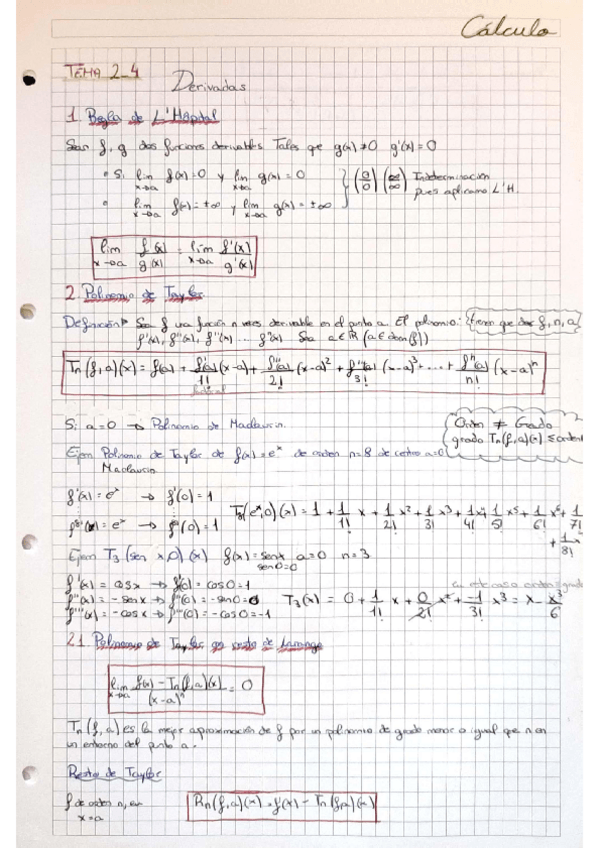 Cálculo
TEMA 2_4
Derivadas
1. Regla de L'Hôpital
Sean f, g dos funciones derivables Tales que g(x) ≠ 0 g'(x) = 0
• Si lim x→a f(x) = 0 y lim x→a g(x) = 0 } (0/0) (∞/∞) Indeterminación
pues aplicamo L'H.
• lim x→a f(x) = ±∞ y lim x→a g(x) = ±∞
lim x→a f(x)/g(x) = lim x→a f'(x)/g'(x)
2. Polinomio de Taylor
Definición Sea f una función n veces derivable en el punto a. El polinomio: tienen que dar f, n, a
f'(x), f''(x), f'''(x) ... fⁿ(x) Sea a ∈ ℝ (a ∈ dom(f))
Tn(f, a)(x) = f(a) + f'(a)/1! (x-a) + f''(a)/2! (x-a)² + f'''(a)/3! (x-a)³ + ... + fⁿ(a)/n! (x-a)ⁿ
Si a=0 → Polinomio de Maclaurin.
Orden ≠ Grado
grado Tn(f,a)(x) ≤ orden
Ejem Polinomio de Taylor de f(x)=eˣ de orden n=8 de centro a=0
Maclaurin
f'(x) = eˣ → f'(0) = 1
T8(eˣ,0)(x) = 1 + 1/1! x + 1/2! x² + 1/3! x³ + 1/4! x⁴ + 1/5! x⁵ + 1/6! x⁶ + 1/7!
(x) = eˣ → (0) = 1
+ 1/8! x⁸
Ejem T3(sen x,0)(x) f(x) = senx a=0 n=3
sen0=0
f'(x) = cosx → f'(0) = cos0 = 1
En este caso orden = grado
f''(x) = -senx → f''(0) = -sen0 = 0
T3(x) = 0 + 1/1! x + 0/2! x² + -1/3! x³ = x - x³/6
f'''(x) = -cosx → f'''(0) = -cos0 = -1
2.1. Polinomio de Taylor con resto de Lagrange
lim x→a f(x) - Tn(f,a)(x) / (x-a)ⁿ = 0
Tn(f,a) es la mejor aproximación de f por un polinomio de grado menor o igual que n en
un entorno del punto a.
Resto de Taylor
f de orden n, en
x=a
Rn(f,a)(x) = f(x) - Tn(f,a)(x)